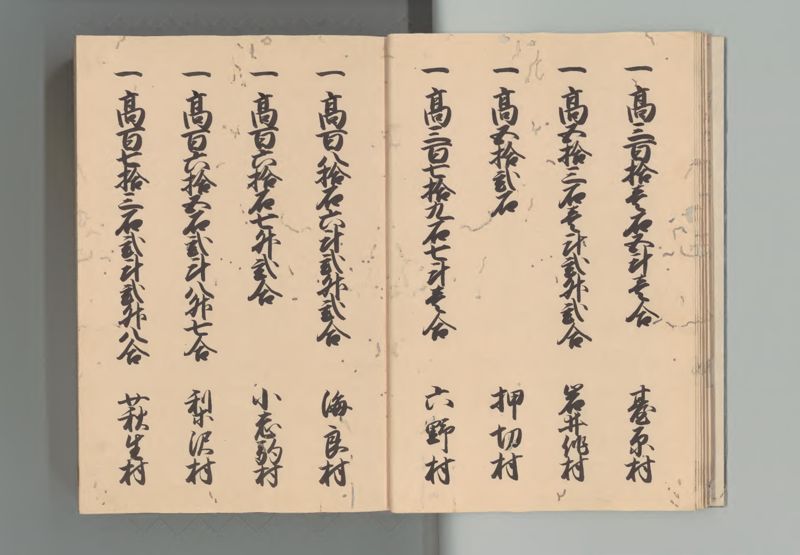 一 高三百拾壱石五斗壱合 臺原村
一 高五拾三石壱斗弐升弐合 岩井作村
一 高五拾弐石 押切村
一 高二百七拾九石七斗壱合 六野村
一 高百八拾石六斗弐升弐合 海良村
一 高百六拾石七升弐合 小志駒村
一 高百六拾五石弐斗八升七合 梨沢村
一 高百七拾三石弐斗弐升八合 萩生村